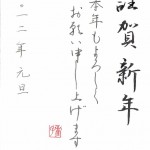 謹賀新年
本年もよろしく
お願い申し上げます
二〇一二年 元旦